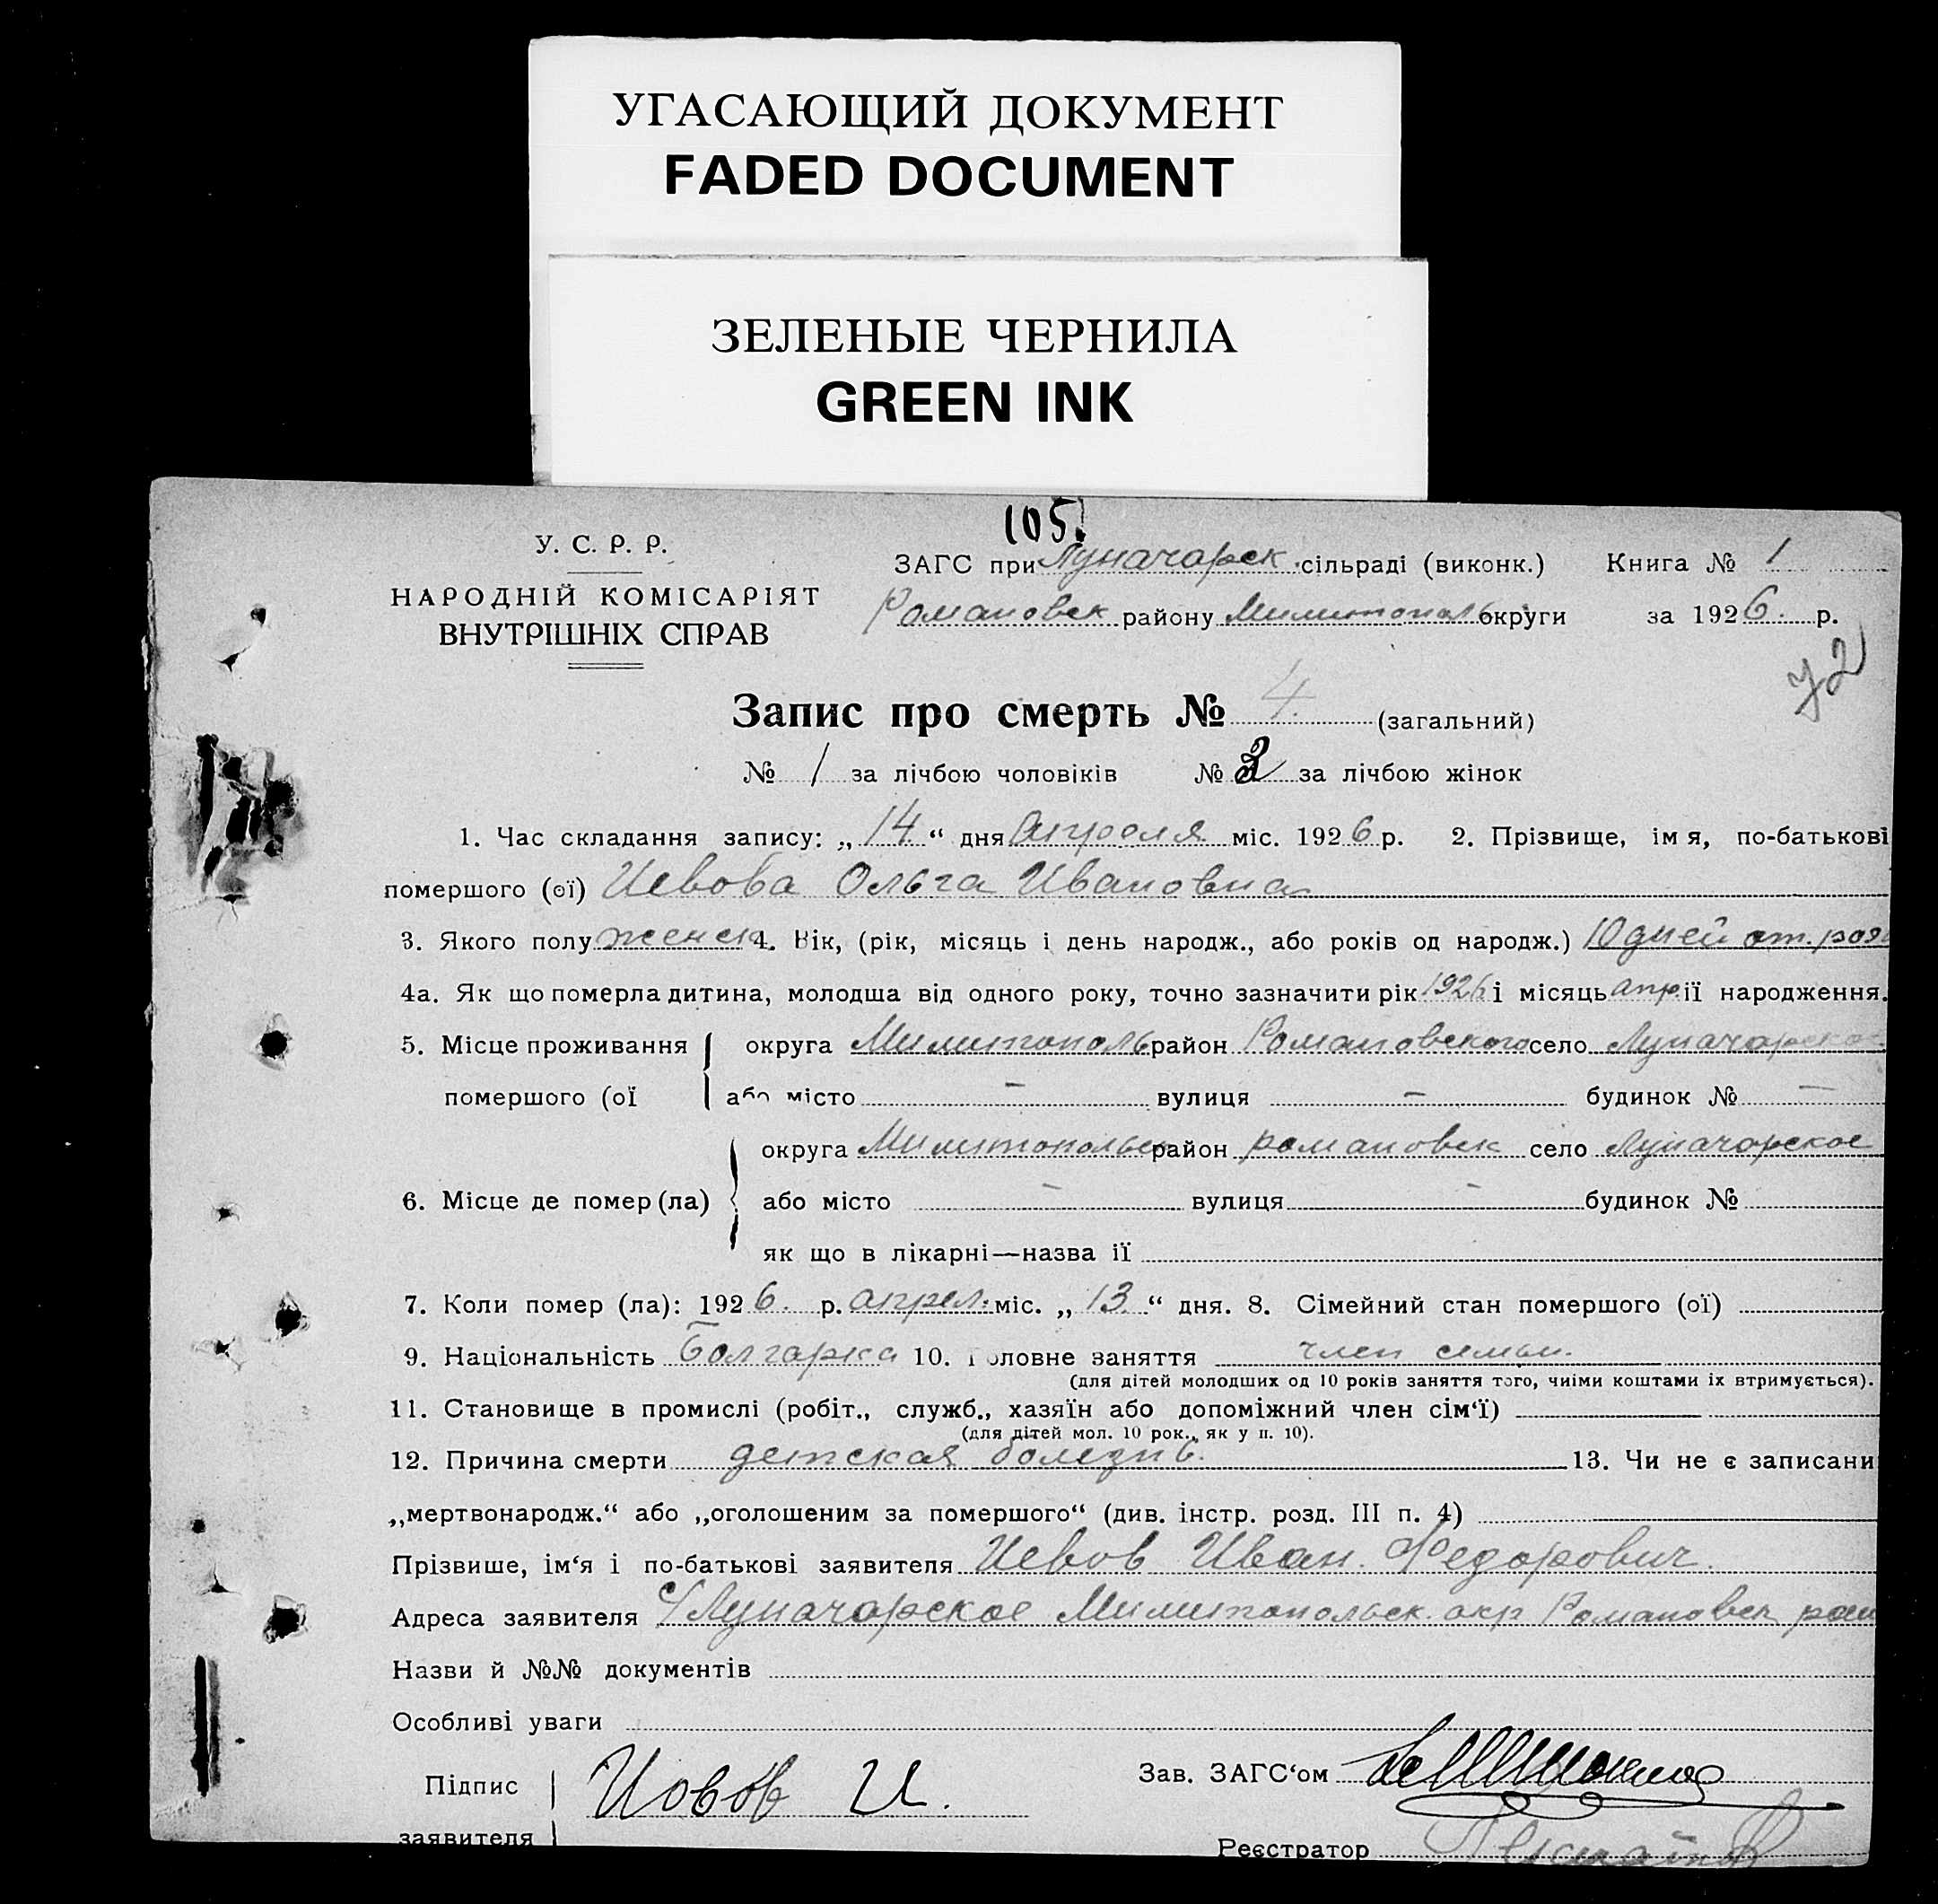 УГАСАЮЩИЙ ДОКУМЕНТ
FADED DOCUMENT
ЗЕЛЕНЫЕ ЧЕРНИЛА
GREEN INK
105.
У. С. Р. Р.
НАРОДНІЙ КОМІСАРІЯТ
ВНУТРІШНІХ СПРАВ
ЗАГС при Луначарск. сільраді (виконк.) Книга № 1
Романовск району Милитополь округи за 1926. р.
72
Запис про смерть № 4. (загальний)
№ 1 за лічбою чоловіків № 3 за лічбою жінок
1. Час складання запису: „14“ дня Апреля міс. 1926 р. 2. Прізвище, імя, по-батькові
помершого (ої) Иевова Ольга Ивановна
3. Якого полу женск 4. Вік, (рік, місяць і день народж., або років од народж.) 10 дней от. рож
4а. Як що померла дитина, молодша від одного року, точно зазначити рік 1926 і місяць апр. ії народження.
5. Місце проживання округа Милитополь район Романовского село Луначарское
помершого (ої або місто — вулиця — будинок № —
округа Милитопольск район романовск село Луначарское
6. Місце де помер (ла) або місто — вулиця — будинок №
як що в лікарні—назва ії
7. Коли помер (ла): 1926. р. апрел. міс. „13“ дня. 8. Сімейний стан помершого (ої)
9. Національність Болгарка 10. Головне заняття член семьи.
(для дітей молодших од 10 років заняття того, чиіми коштами іх втримується).
11. Становище в промислі (робіт., служб., хазяїн або допоміжний член сім‘ї)
(для дітей мол. 10 рок., як у п. 10).
12. Причина смерти детская болезнь. 13. Чи не є записани
„мертвонародж.“ або „оголошеним за помершого“ (див. інстр. розд. III п. 4)
Прізвише, ім‘я і по-батькові заявителя Иевов Иван. Федорович.
Адреса заявителя с/Луначарское Милитопольск. окр Романовск рай
Назви й №№ документів
Особливі уваги
Підпис Иовов И. Зав. ЗАГС‘ом
заявителя
Реєстратор